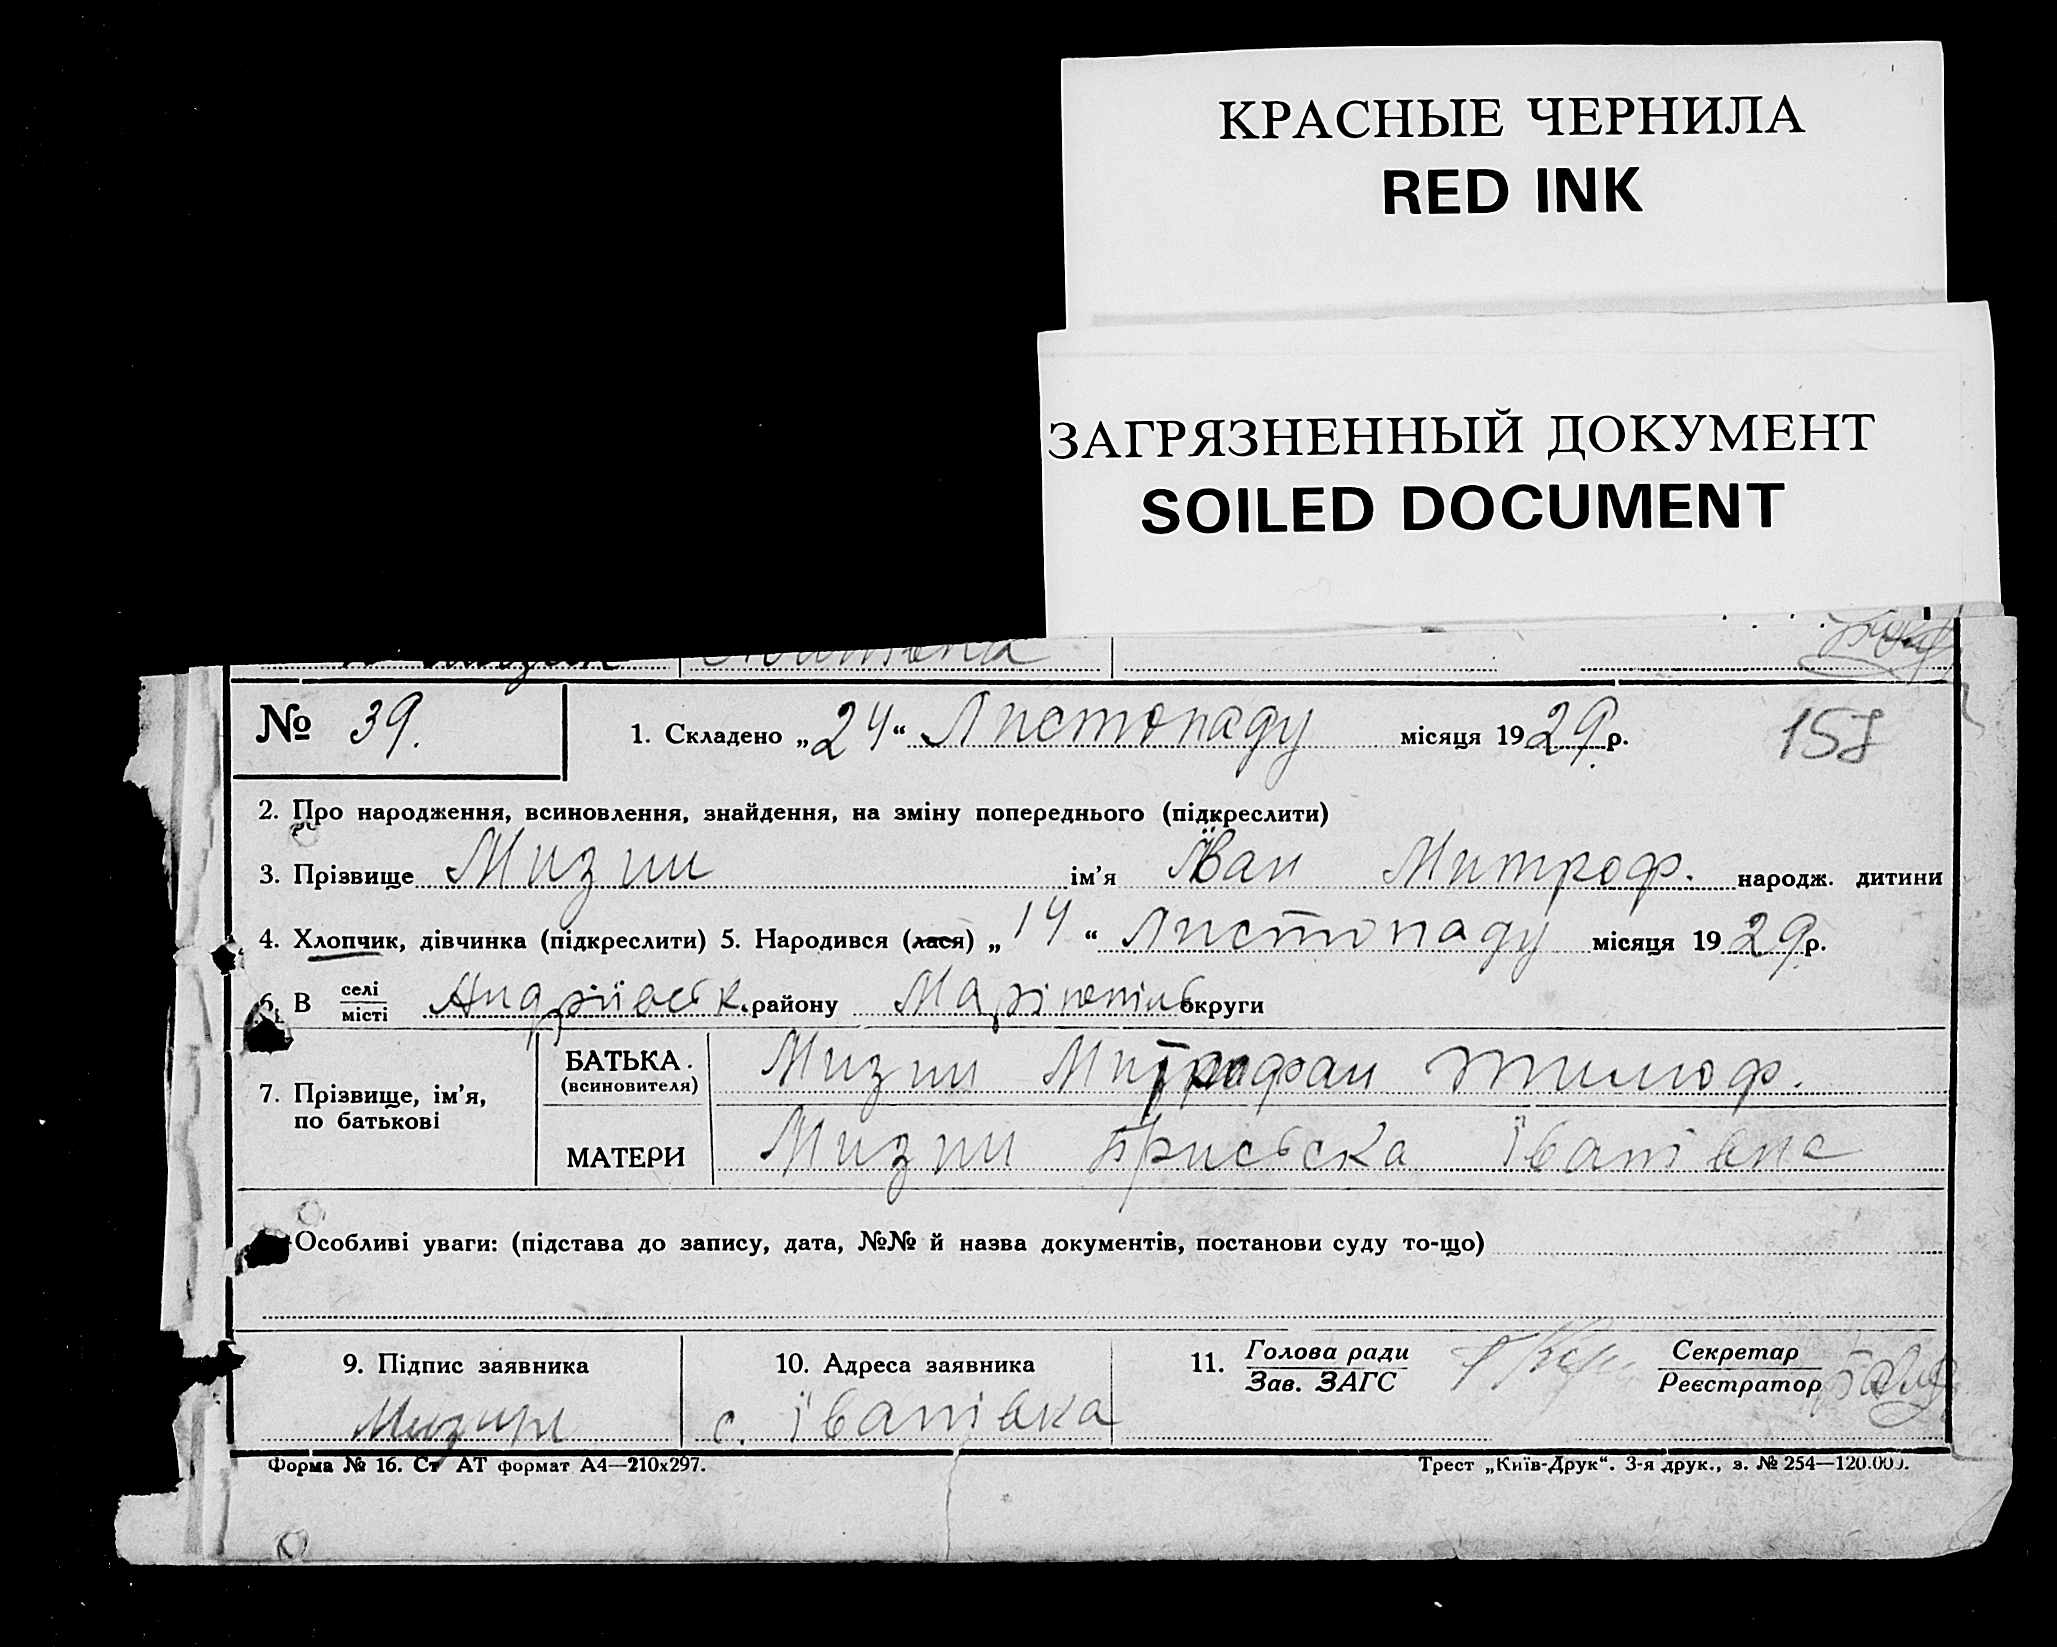 КРАСНЫЕ ЧЕРНИЛА
RED INK
ЗАГРЯЗНЕННЫЙ ДОКУМЕНТ
SOILED DOCUMENT
№ 39. 1. Складено „24“ Листопаду місяця 1929 р. 157
2. Про народження, всиновлення, знайдення, на зміну попереднього (підкреслити)
3. Прізвище Мизин ім'я Іван Митроф. народж. дитини
4. Хлопчик, дівчинка (підкреслити) 5. Народився (лася) „14“ Листопаду місяця 1929 р.
6. В селі місті Андріївськ. району Маріюпільс округи
7. Прізвище, ім'я, по батькові
БАТЬКА. (всиновителя) Мизин Митрофан Тимоф.
МАТЕРИ Мизин Іванівна
Особливі уваги: (підстава до запису, дата, №№ й назва документів, постанови суду то-що)
9. Підпис заявника 10. Адреса заявника 11. Голова ради Зав. ЗАГС Секретар Реєстратор
Мизин с. Іванівка
Форма № 16. Ст АТ формат А4—210х297. Трест „Київ-Друк“. 3-я друк., з. № 254—120.000.